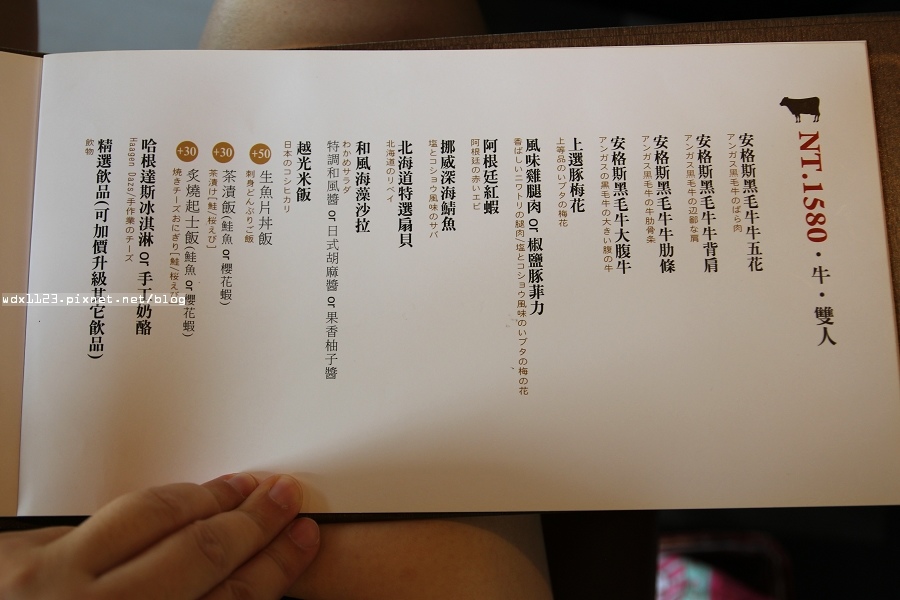 NT.1580．牛．雙人
安格斯黑毛牛牛五花
アンガス黒毛牛のばら肉
安格斯黑毛牛牛背肩
アンガス黒毛牛の辺鄙な肩
安格斯黑毛牛牛肋條
アンガス黒毛牛の牛肋骨条
安格斯黑毛牛大腹牛
アンガスの黒毛牛の大きい腹の牛
上選豚梅花
上等品のいブタの梅花
風味雞腿肉 or 椒鹽豚菲力
香ばしいニワトリの腿肉/塩とコショウ風味のいブタの梅の花
阿根廷紅蝦
阿根廷の赤いエビ
挪威深海鯖魚
塩とコショウ風味のサバ
北海道特選扇貝
北海道のリベイ
和風海藻沙拉
わかめサラダ
特調和風醬 or 日式胡麻醬 or 果香柚子醬
越光米飯
日本のコシヒカリ
+50 生魚片丼飯
刺身どんぶりご飯
+30 茶漬飯(鮭魚 or 櫻花蝦)
茶漬け[鮭/桜えび]
+30 炙燒起士飯(鮭魚 or 櫻花蝦)
焼きチーズおにぎり[鮭/桜え
哈根達斯冰淇淋 or 手工奶酪
Haagen Dazs/手作業のチーズ
精選飲品(可加價升級其它飲品)
飲物
wdx1123.pixnet.net/blog